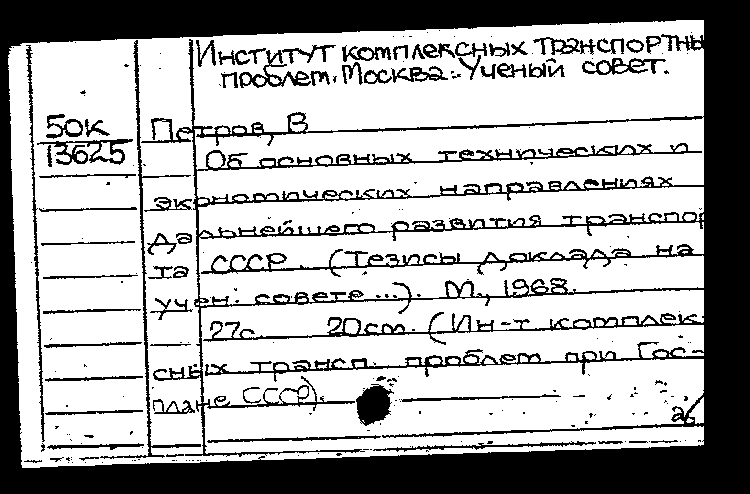 Институт комплексных транспортны
проблем. Москва. Ученый совет.
50к Петров, В
13625 Об основных технических и
экономических направлениях
дальнейшего развития транспор
та СССР. (Тезисы доклада на
учен. совете...). М., 1968.
27с. 20см. (Ин-т комплек-
сных трансп. проблем при Гос-
плане СССР).